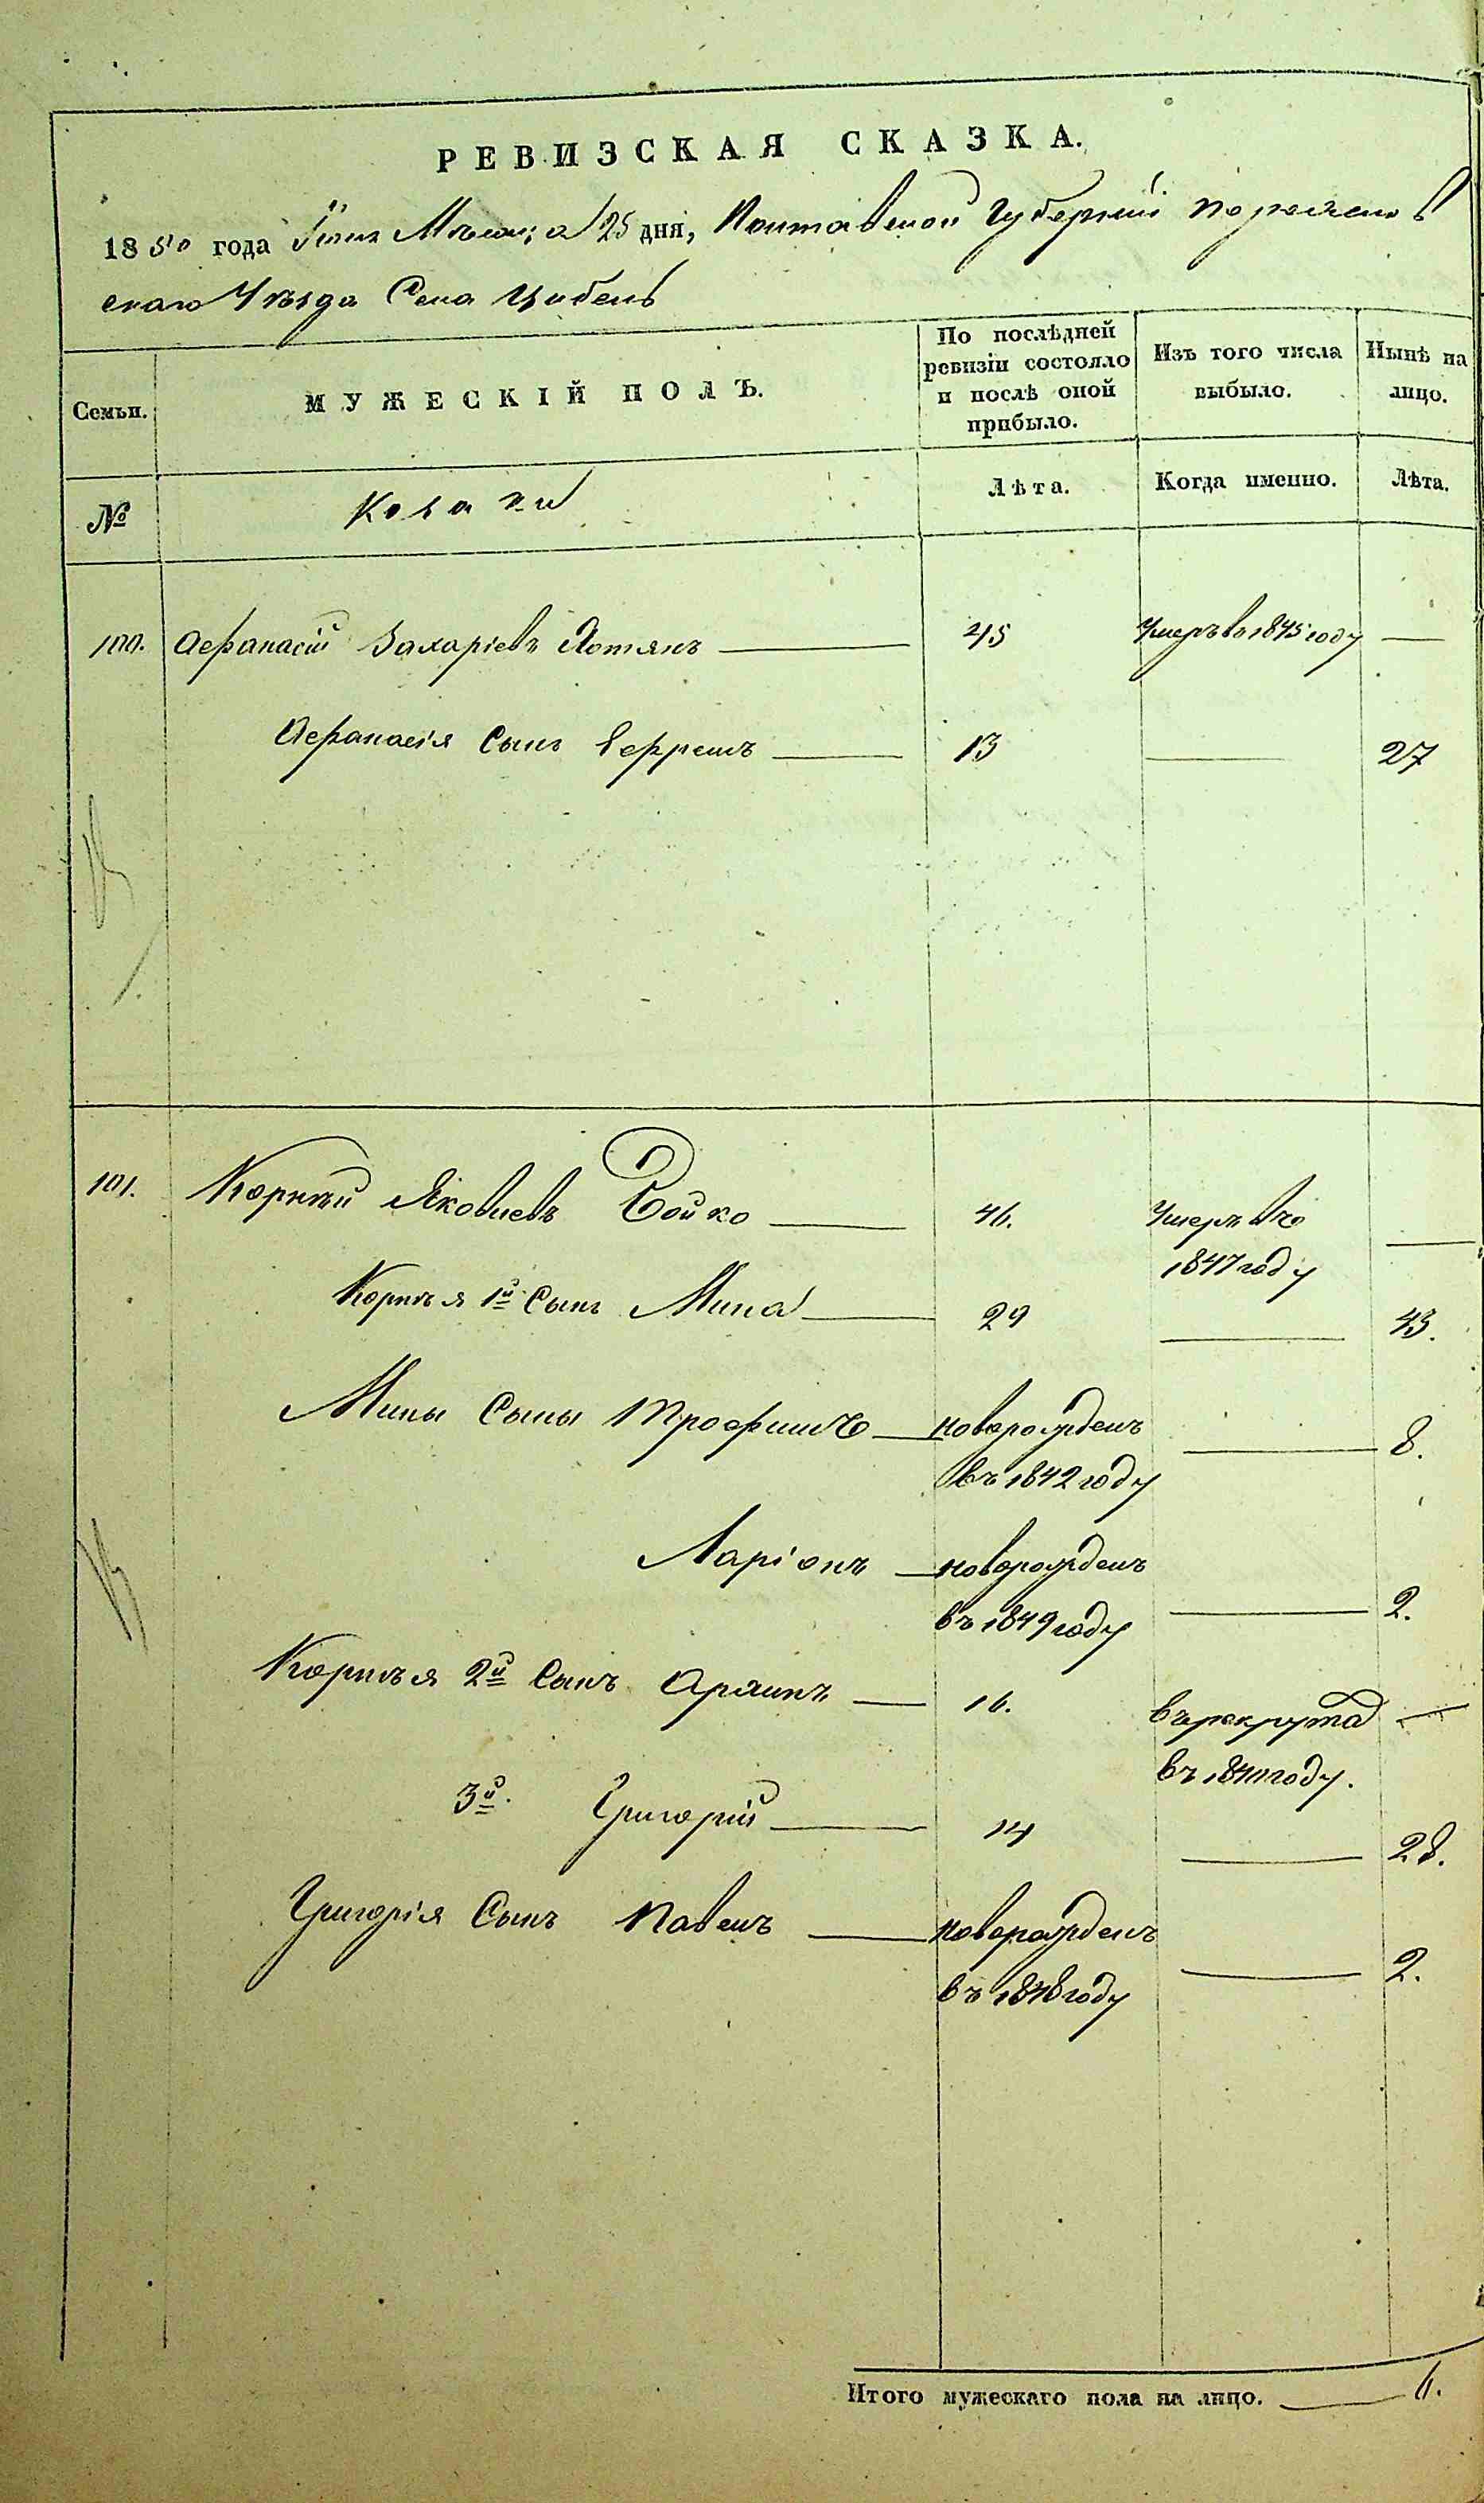 РЕВИЗСКАЯ СКАЗКА.
1850 года Іюня Мѣсяца 25 дня, Полтавской Губерніи Переяслов
скаго Уѣзда Села Цибель
Семьи. МУЖЕСКІЙ ПОЛЪ. По послѣдней ревизіи состояло и послѣ оной прибыло. Изъ того числа выбыло. Нынѣ на лицо.
№ Козаки Лѣта. Когда именно. Лѣта.
100. Афанасій Захаріевъ 45 Умеръ в 1845 году —
Афанасія Сынъ Ефремъ 13 — 27
101. Корнѣй Яковлевъ Бойко 46. Умеръ въ
1847 году —
Корнѣя 1й Сынъ Мина 29 — 43.
Мины Сыны Трофимъ новорожденъ — 8.
въ 1842 году
Ларіонъ новорожденъ
въ 1849 году — 2.
Корнѣя 2й Сынъ 16. въ рекрута —
въ 1840 году.
3й. Григорій 14 — 28.
Григорія Сынъ Павелъ новорожденъ — 2.
въ 1848 году
Итого мужескаго пола на лицо. 6.